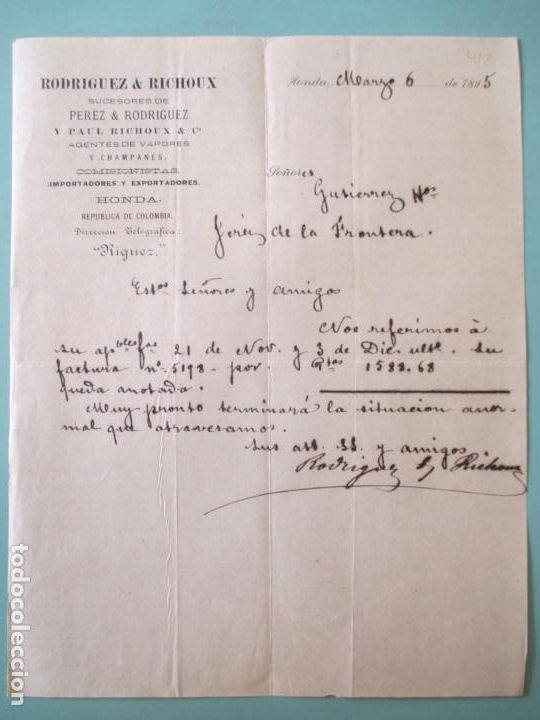 413
RODRIGUEZ & RICHOUX
SUCESORES DE
PEREZ & RODRIGUEZ
Y PAUL RICHOUX & Cª
AGENTES DE VAPORES
Y CHAMPANES.
COMISIONISTAS.
IMPORTADORES Y EXPORTADORES.
HONDA.
REPUBLICA DE COLOMBIA.
Direccion Telegráfica:
"Riguez."
Honda, Marzo 6 de 1895
Señores
Gutierrez Hos
Jeréz de la Frontera.
Estos Señores y amigos
Nos referimos à
su apbles fas 21 de Nov. y 3 de Dic. ulto. su
factura no. 5198 - por. 1588.68
queda anotada.
Muy pronto terminará la situacion anor-
mal que atravesamos.
sus att. SS. y amigos
Rodriguez & Richoux
todocoleccion.net